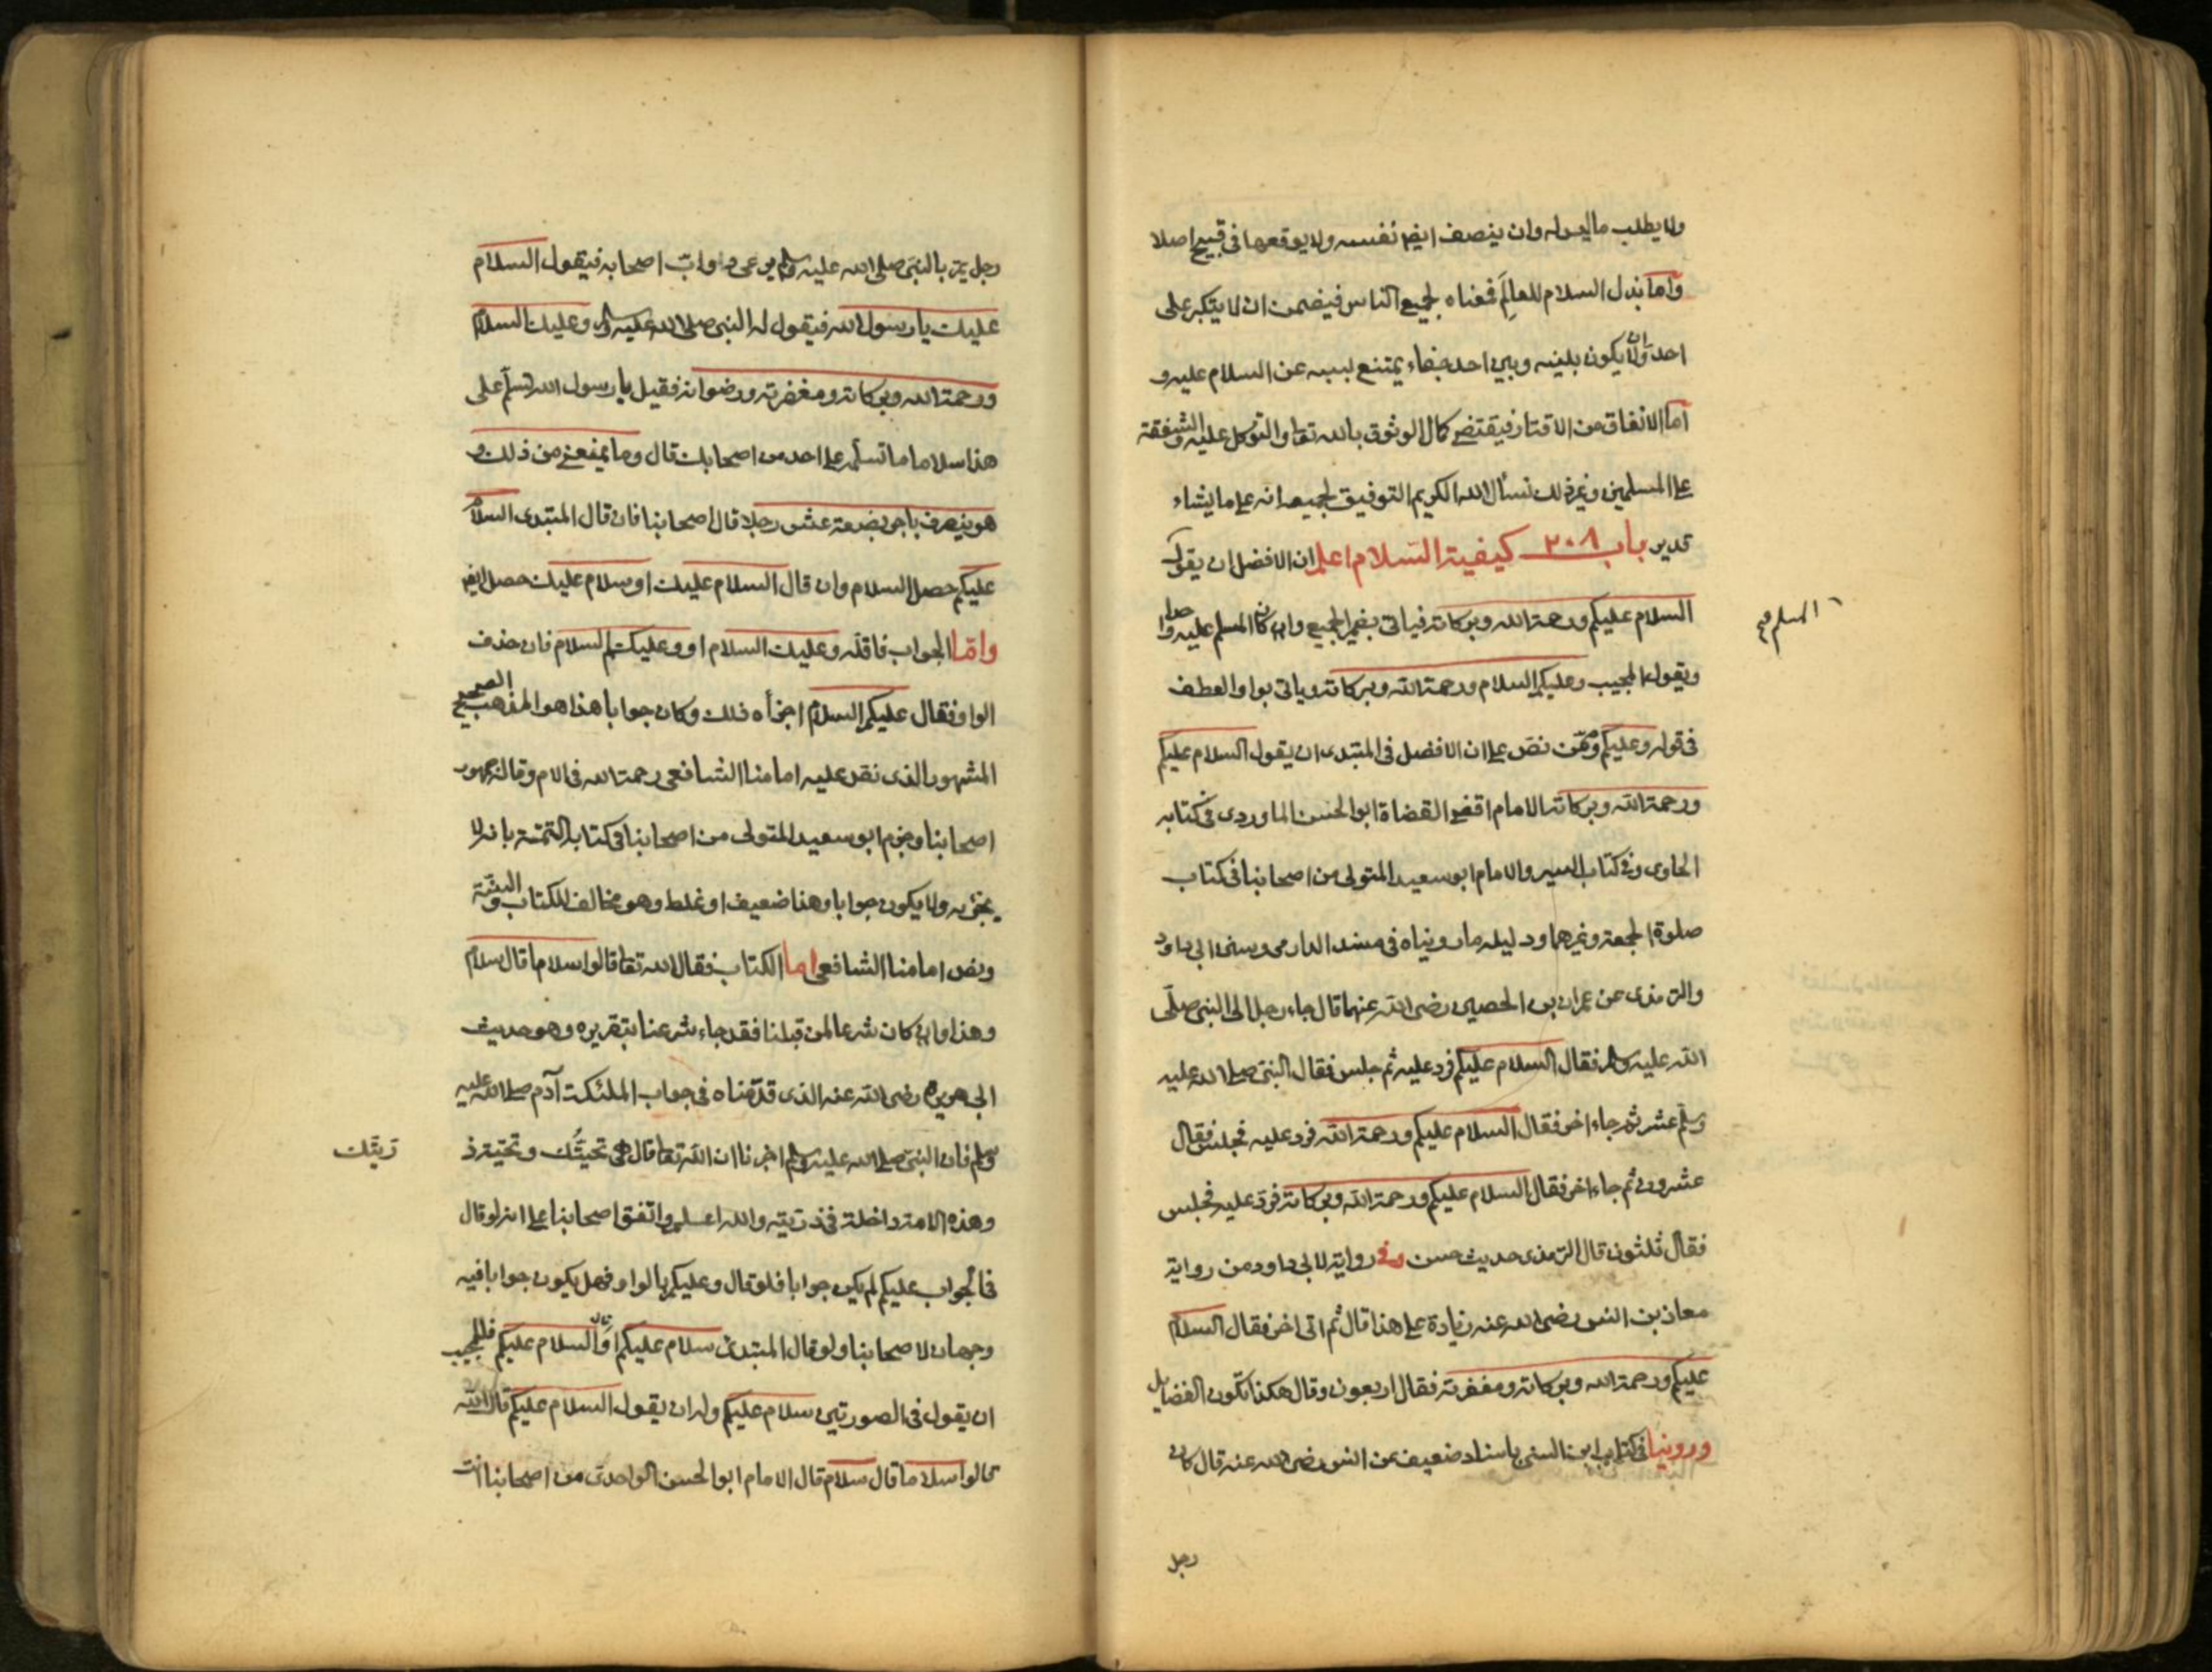 ولا يطلب ما ليس له وان ينصف ايضا نفسه ولا يوقعها في قبيح اصلا
واما بذل السلام للعالم فمعناه لجميع الناس فيضمن ان لا يتكبر على
احد وان لا يكون بينه وبين احد جفاء يمتنع بسببه عن السلام عليه و
اما الانفاق من الاقتار فيقتضى كمال الوثوق بالله تعا والتوكل عليه والشفقة
على المسلمين وغير ذلك نسأل الله الكريم التوفيق لجميعه انه على ما يشاء
قدير باب ٢٠٨ كيفية السلام اعلم ان الافضل ان يقول
السلام عليكم ورحمة الله وبركاته فياتى بضمير الجميع وان كان المسلم عليه واحدا
المسلم صح
ويقول المجيب وعليكم السلام ورحمة الله وبركاته وياتى بواو العطف
في قوله وعليكم وممن نص على ان الافضل في المبتدى ان يقول السلام عليكم
ورحمة الله وبركاته الامام اقضى القضاة ابو الحسن الماوردى في كتابه
الحاوى في كتاب السير والامام ابو سعيد المتولى من اصحابنا في كتاب
صلوة الجمعة وغيرهما ودليله ما رويناه في مسند الدارمى وسنن ابى داود
والترمذى عن عمران بن الحصين رضى الله عنهما قال جاء رجل الى النبى صلى
الله عليه وسلم فقال السلام عليكم فرد عليه ثم جلس فقال النبى صلى الله عليه
وسلم عشر ثم جاء اخر فقال السلام عليكم ورحمة الله فرد عليه فجلس فقال
عشرون ثم جاء اخر فقال السلام عليكم ورحمة الله وبركاته فرد عليه فجلس
فقال ثلثون قال الترمذى حديث حسن وفى رواية لابى داود من رواية
معاذ بن انس رضى الله عنه زيادة على هذا قال ثم اتى اخر فقال السلام
عليكم ورحمة الله وبركاته ومغفرته فقال اربعون وقال هكذا تكون الفضايل
وروينا في كتاب ابن السنى باسناد ضعيف عن انس رضى الله عنه قال كان
رجل
رجل يمر بالنبى صلى الله عليه وسلم يرعى دواب اصحابه فيقول السلام
عليك يا رسول الله فيقول له النبى صلى الله عليه وسلم وعليك السلام
ورحمة الله وبركاته ومغفرته ورضوانه فقيل يا رسول الله تسلم على
هذا سلاما ما تسلمه على احد من اصحابك قال وما يمنعنى من ذلك و
هو ينصرف باجر بضعة عشر رجلا قال اصحابنا فان قال المبتدى السلام
عليكم حصل السلام وان قال السلام عليك او سلام عليك حصل ايضا
واما الجواب فاقله وعليك السلام او وعليكم السلام فان حذف
الواو فقال عليكم السلام اجزأه ذلك وكان جوابا هذا هو المذهب الصحيح
المشهور الذى نقد عليه امامنا الشافعى رحمة الله في الام وقاله جمهور
اصحابنا وجزم ابو سعيد المتولى من اصحابنا في كتابه التتمة بانه لا
يجزيه ولا يكون جوابا وهذا ضعيف او غلط وهو مخالف للكتاب والسنة
ونص امامنا الشافعى اما الكتاب فقال الله تعا قالوا سلاما قال سلام
وهذا وان كان شرعا لمن قبلنا فقد جاء شرعنا بتقريره وهو حديث
ابى هريرة رضى الله عنه الذى قدمناه في جواب الملئكة آدم صلى الله عليه
وسلم فان النبى صلى الله عليه وسلم اخبرنا ان الله تعا قال هى تحيتك وتحية ذ
ريتك
وهذه الامة داخلة في ذريته والله اعلم واتفق اصحابنا على انه لو قال
في الجواب عليكم لم يكن جوابا فلو قال وعليكم بالواو فهل يكون جوابا فيه
وجهان لاصحابنا ولو قال المبتدئ سلام عليكم او قال السلام عليكم فللمجيب
ان يقول في الصورتين سلام عليكم وله ان يقول السلام عليكم قال الله
قالوا سلاما قال سلام قال الامام ابو الحسن الواحدى من اصحابنا انت